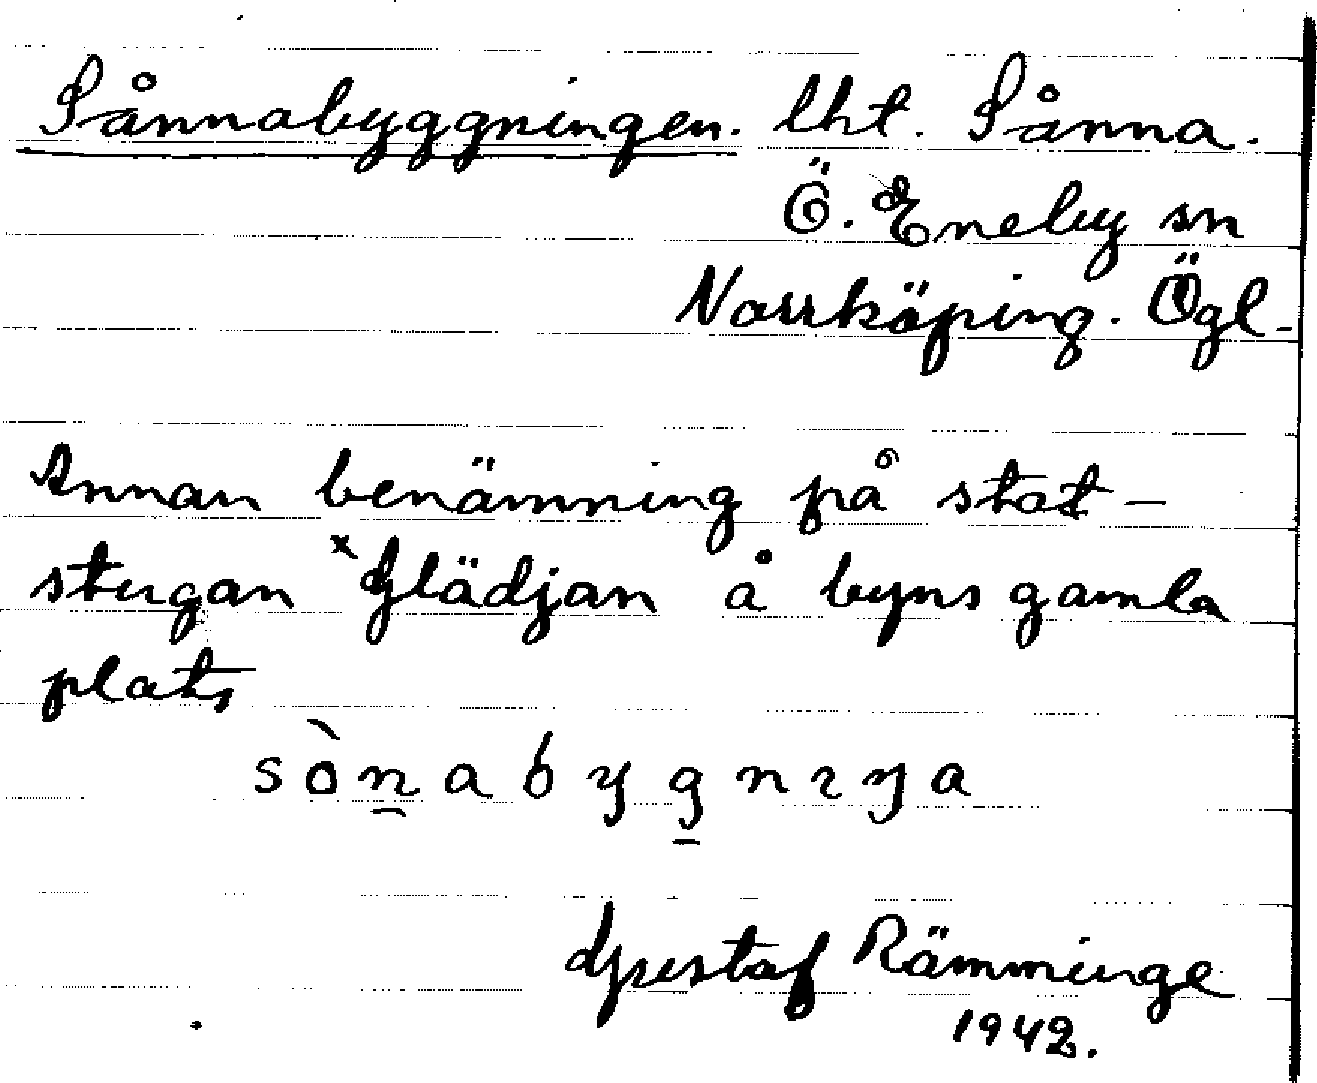 Sånnabyggningen. lht. Sånna.
Ö. Eneby sn
Norrköping. Ögl.
Annan benämning på stat-
stugan ˣGlädjan å byns gamla
plats
sòn̲abyg̲nıŋa
Gustaf Rämminge
1942.